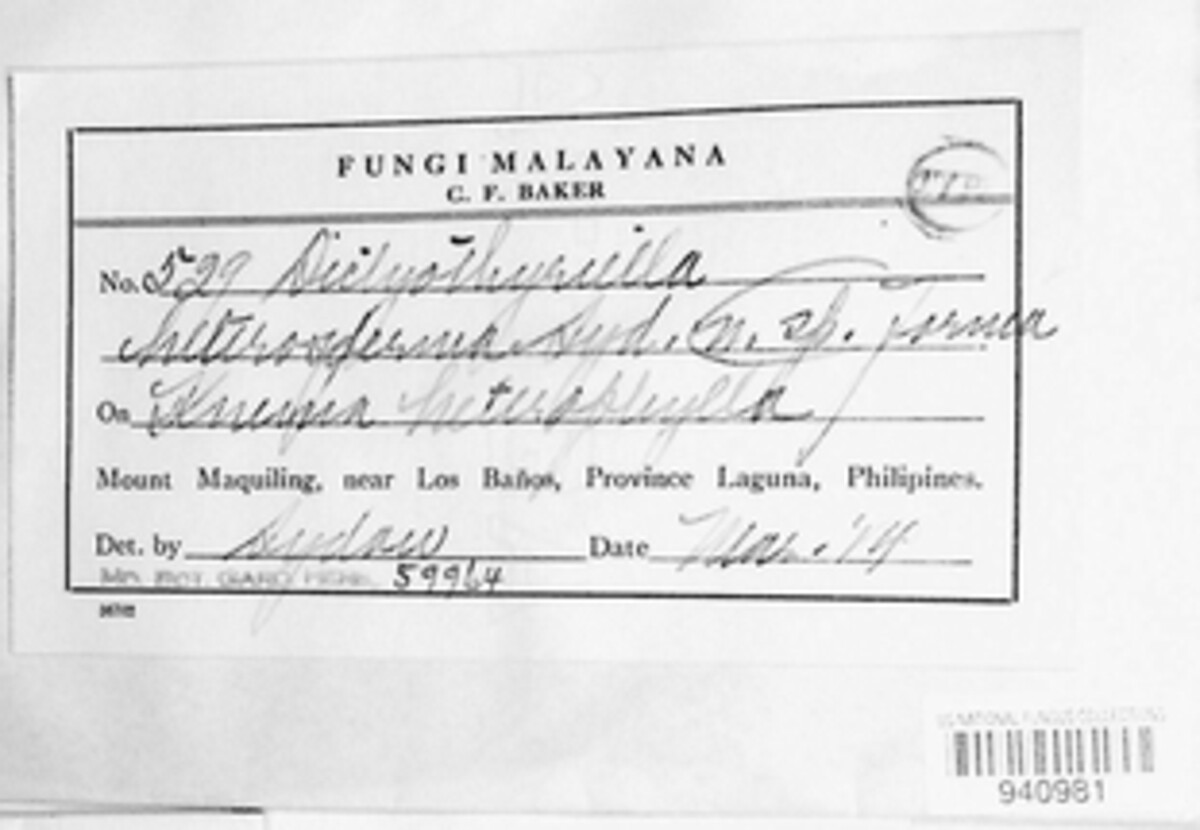 FUNGI MALAYANA
C. F. BAKER
No. 529 Dictyothyriella
heterosperma Syd. n. sp. forma
On Knema heterophylla
Mount Maquiling, near Los Baños, Province Laguna, Philipines.
Det. by Sydow Date Mar. '14
MO. BOT. GARD. HERB. 59964
US NATIONAL FUNGUS COLLECTIONS
940981